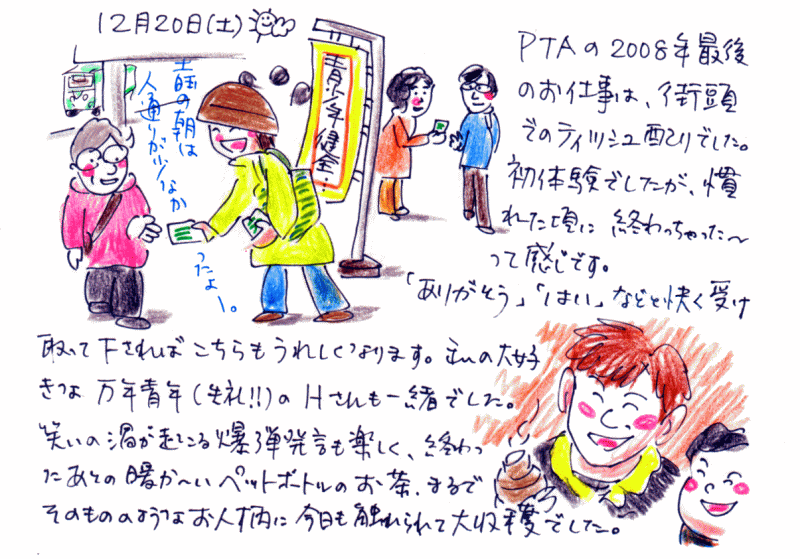 12月20日(土)
土曜の朝は
人通りが少なか
ったよー。
青少年健全・
PTAの2008年最後
のお仕事は、街頭
でのティッシュ配りでした。
初体験でしたが、慣
れた頃に終わっちゃった〜
って感じです。
「ありがとう」「はい」などと快く受け
取って下さればこちらもうれしくなります。私の大好
きな万年青年(失礼!!)のHさんも一緒でした。
笑いの渦が起こる爆弾発言も楽しく、終わっ
たあとの暖か〜いペットボトルのお茶、まるで
そのもののようなお人柄に今日も触れられて大収穫でした。